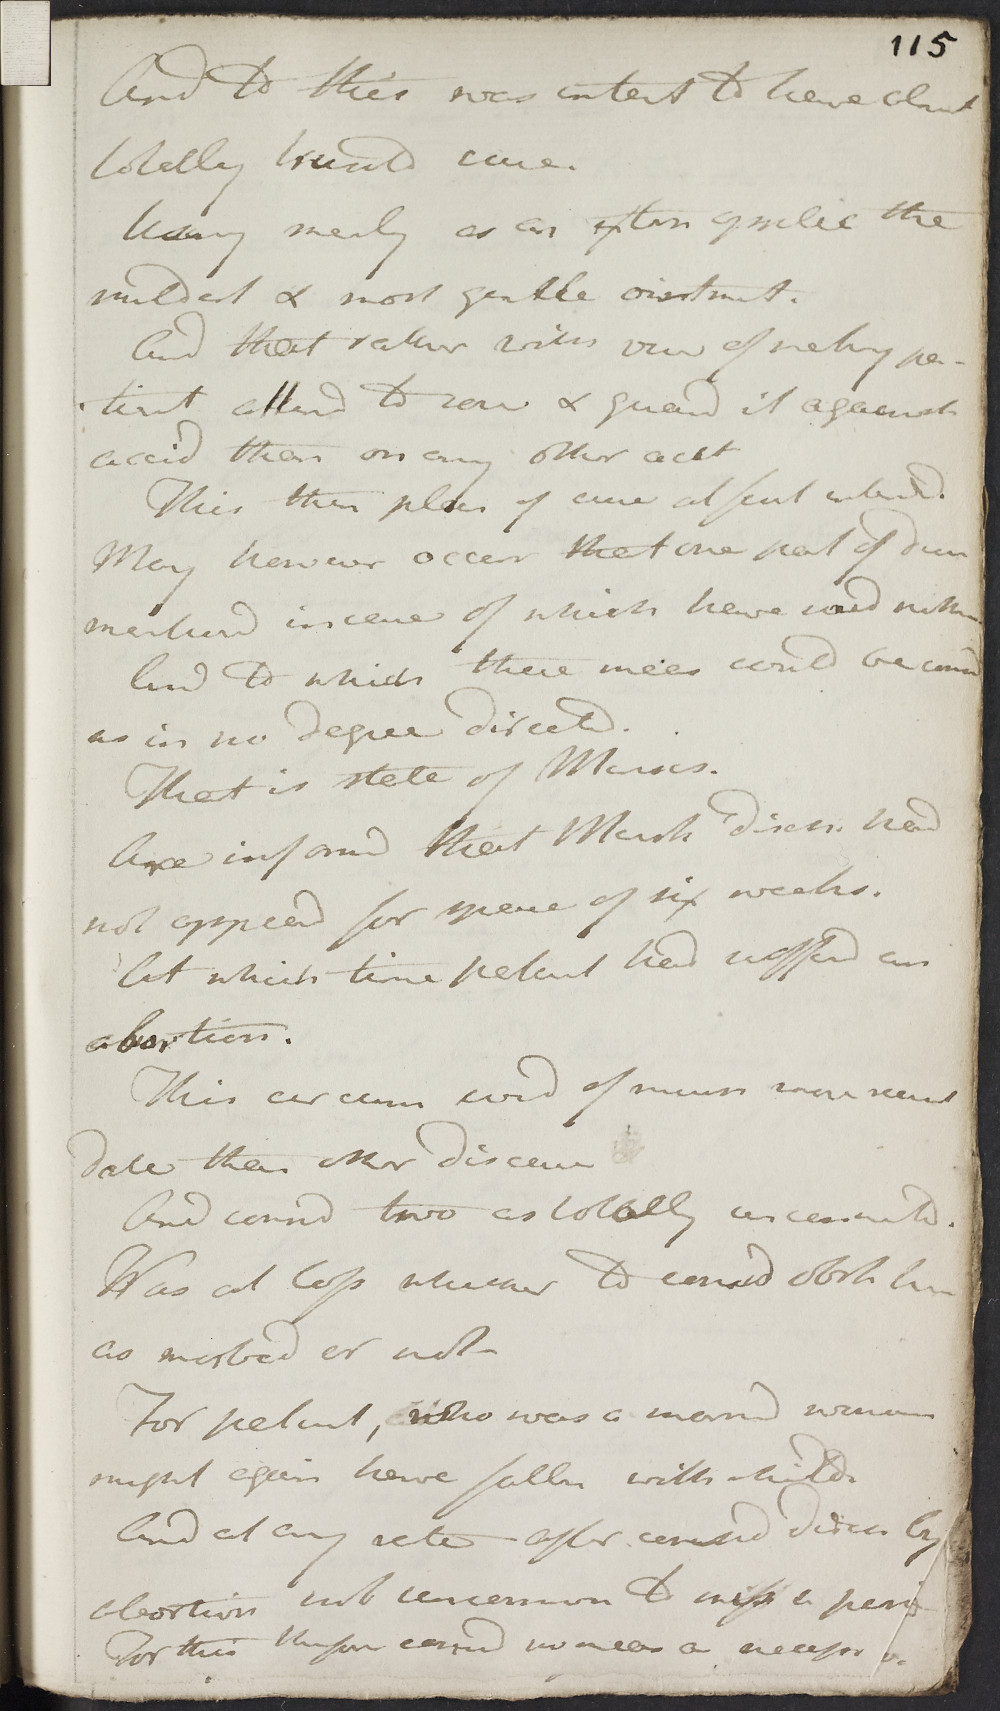 115
And to this was intent to have almt
totally trusted cure.
Using merely as an extern applic the
mildest & most gentle ointment.
And that rather with view of making pa-
tient attend to sore & guard it against
accid than on any other acct
This then plan of cure at first intend.
May however occur that one part of
mentiond in cace of which have said nothin
And to which these mees could be consd
as in no degree directd.
That is state of Menses.
Are informd that Mensh disch. had
not appeard for space of six weeks.
At which time patient had suffered an
abortion.
This circum cond of much more recent
date than other disceace
And consd two as totally unconnectd.
Was at loss whether to consid obstr here
as morbid or not
For patient, who was a marrid woman
might again have fallen with child.
And at any rate after considd disch by
abortion not uncommon to miss a perid
For this therfor consd no meas as necessr